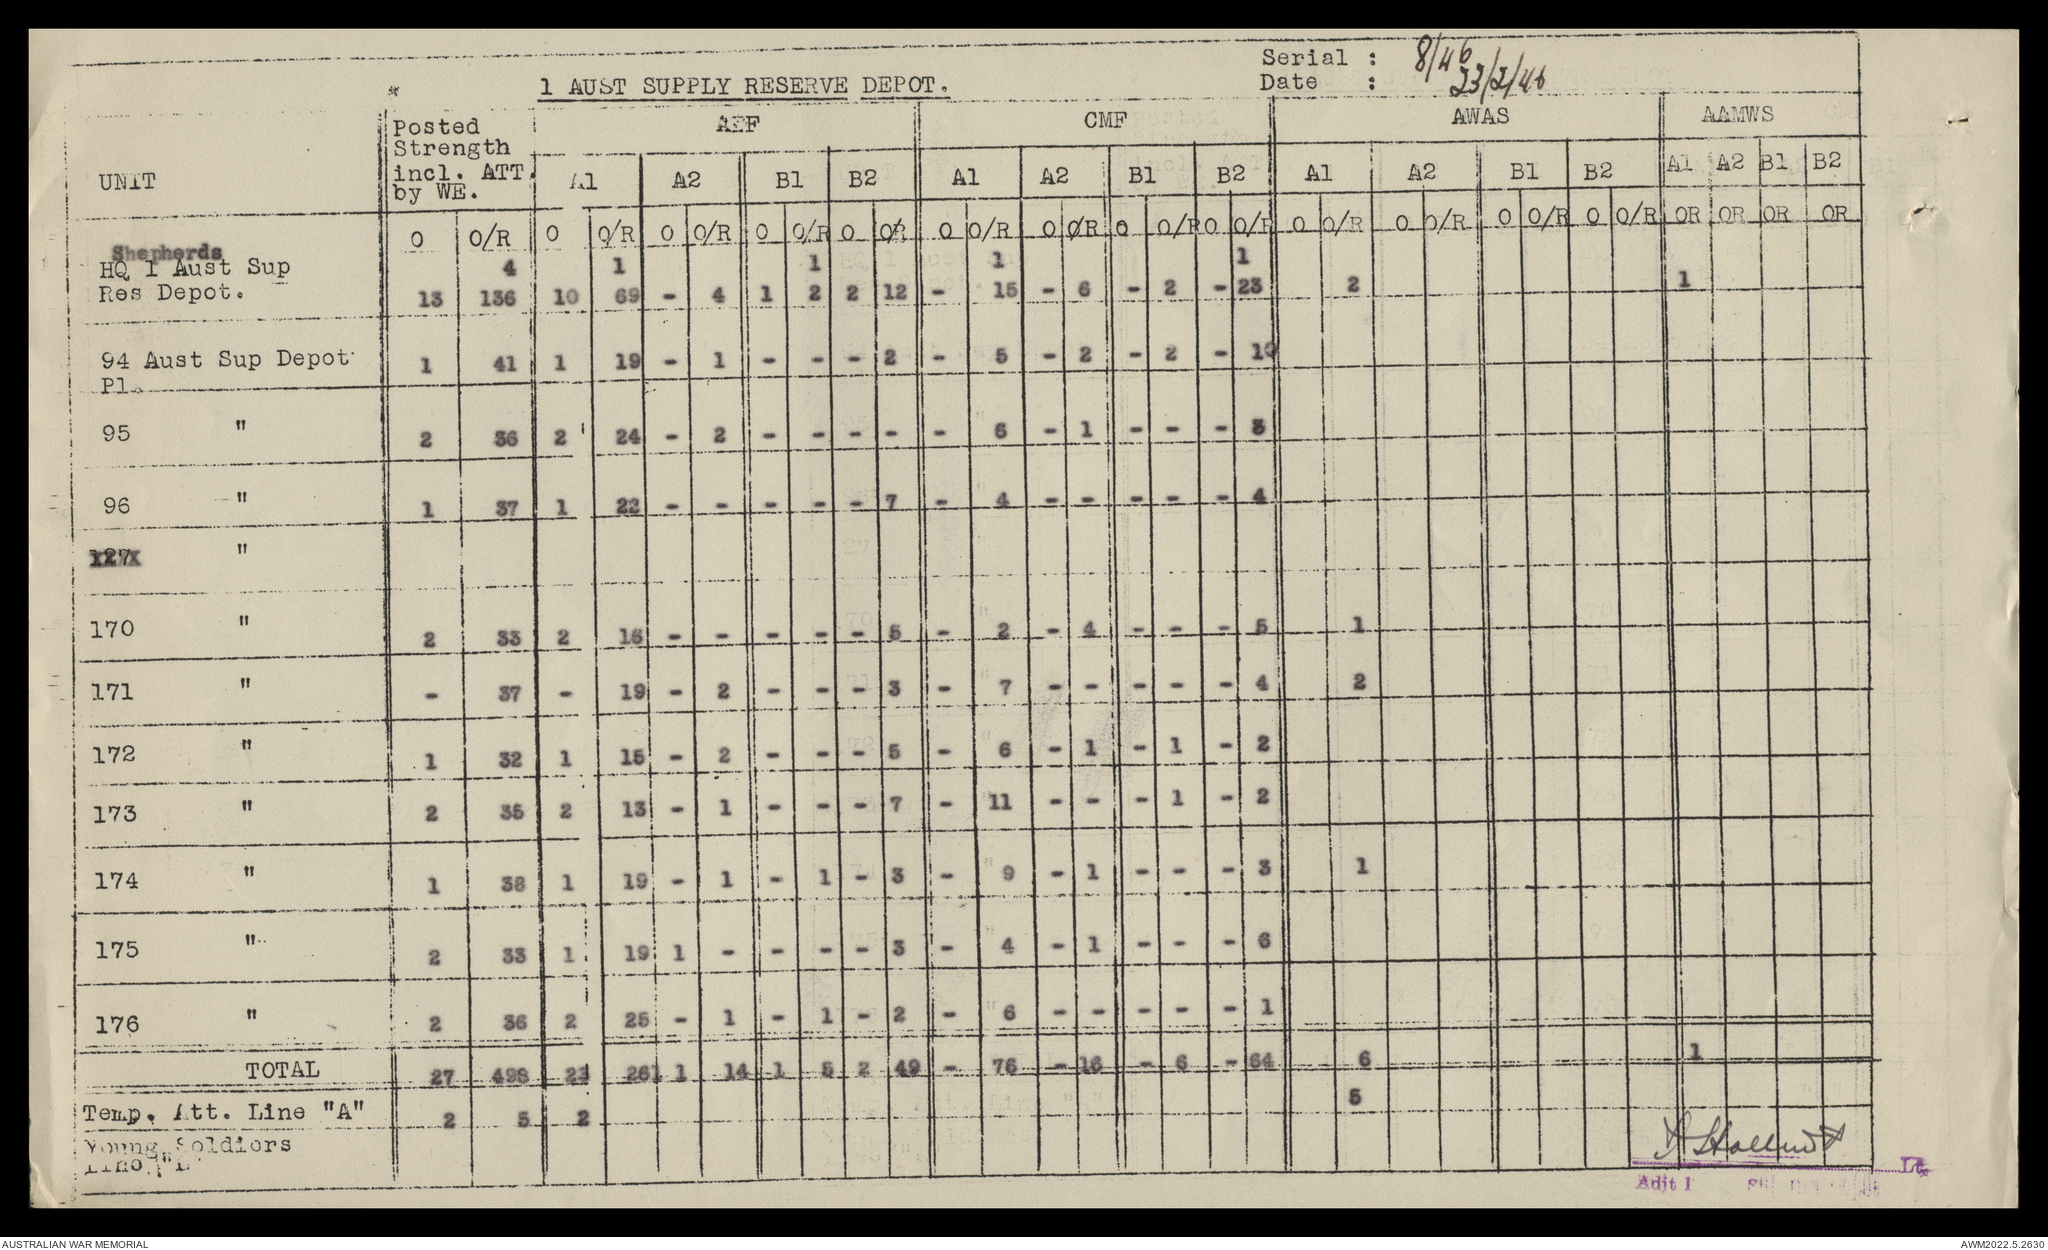 Serial : 8/46
* 1 AUST SUPPLY RESERVE DEPOT.
Date : 23/2/46
UNIT Posted Strength incl. ATT. by WE. AIF CMF AWAS AAMWS
A1 A2 B1 B2 A1 A2 B1 B2 A1 A2 B1 B2 A1 A2 B1 B2
O O/R O O/R O O/R O O/R O O/R O O/R O O/R O O/R O O/R O O/R O O/R O O/R O O/R OR OR OR OR
Shepherds 4 1 1 1 1
HQ 1 Aust Sup
Res Depot. 13 136 10 69 - 4 1 2 2 12 - 15 - 6 - 2 - 23 2 1
94 Aust Sup Depot 1 41 1 19 - 1 - - - 2 - 5 - 2 - 2 - 10
Pl.
95 " 2 36 2 24 - 2 - - - - - 6 - 1 - - - 3
96 " 1 37 1 22 - - - - - 7 - 4 - - - - - 4
127 "
170 " 2 33 2 16 - - - - - 5 - 2 - 4 - - - 5 1
171 " - 37 - 19 - 2 - - - 3 - 7 - - - - - 4 2
172 " 1 32 1 15 - 2 - - - 5 - 6 - 1 - 1 - 2
173 " 2 35 2 13 - 1 - - - 7 - 11 - - - 1 - 2
174 " 1 38 1 19 - 1 - 1 - 3 - 9 - 1 - - - 3 1
175 " 2 33 1 19 1 - - - - 3 - 4 - 1 - - - 6
176 " 2 36 2 25 - 1 - 1 - 2 - 6 - - - - - 1
TOTAL 27 498 23 261 1 14 1 5 2 49 - 76 - 16 - 6 - 64 6 1
Temp. Att. Line "A" 2 5 2 5
Young Soldiers
Lt.
Adjt 1
AUSTRALIAN WAR MEMORIAL
AWM2022.5.2630